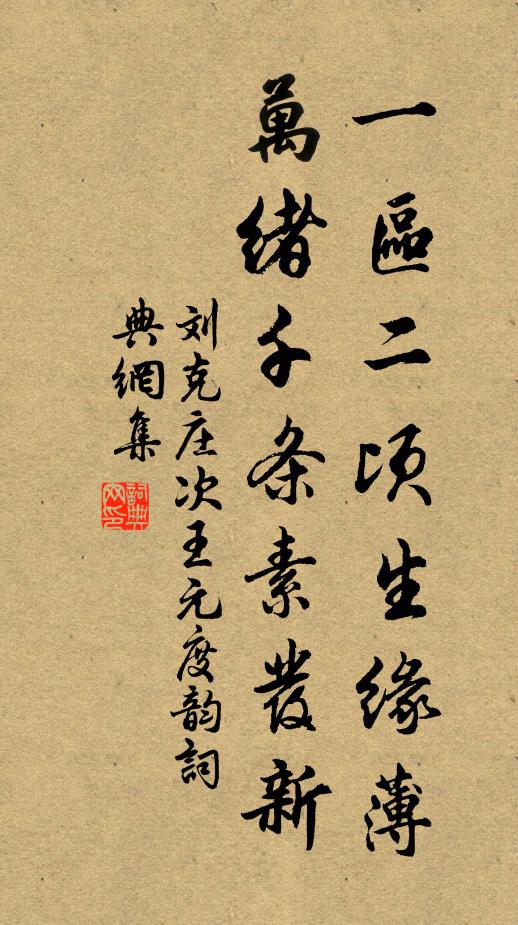 一區二頃生緣薄
萬緒千条素發新
刘克庄次王元度韵詞
典網集
詞典
网印